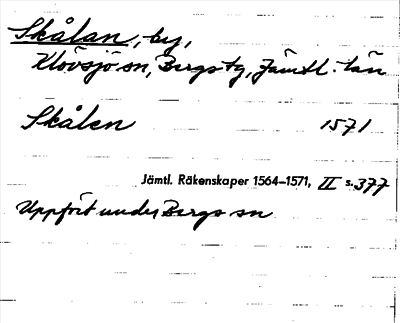 Skålan, by,
Klövsjö sn, Bergs tg, Jämtl. län
Skålen 1571
Jämtl. Räkenskaper 1564–1571, II s. 377
Uppfört under Bergs sn